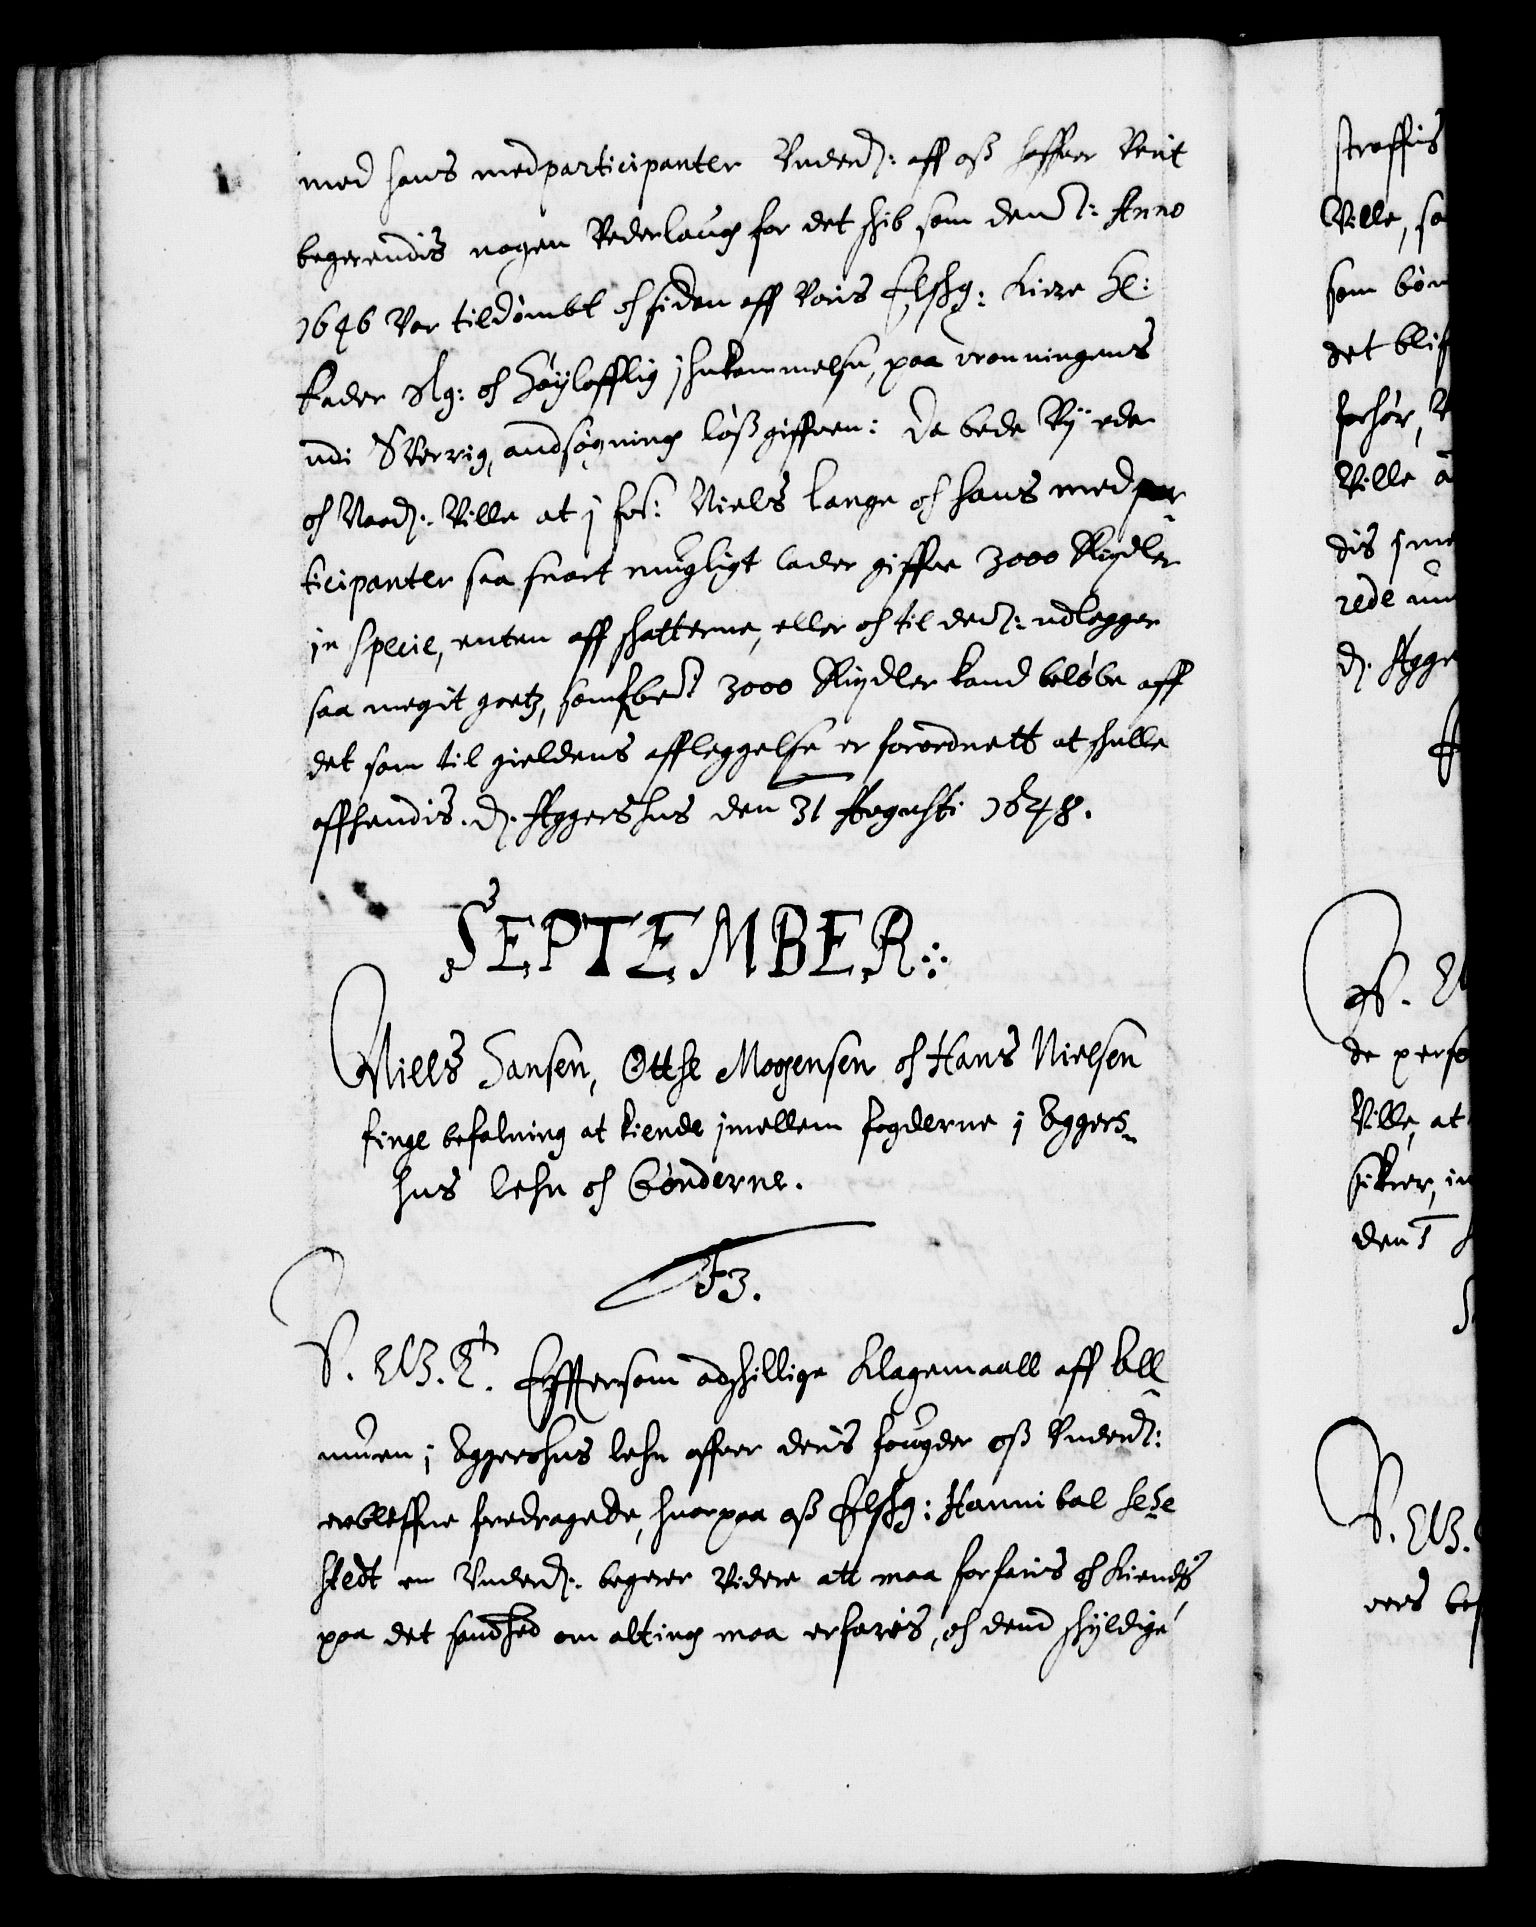 med hans medparticipanter Underd: aff oß haffuer Verit
begerendis nogen Vederlaug for det skib som dem: Anno
1646 Var tildømbt oc siden aff Voris Elskg: kiere He:
Fader Slg: oc Høylofflig ihukommelse, paa dronningens
udi Sverrig, andsøgning løßgiffuen: Da bede Vy eder
oc Naad: Ville at i fos: Niels Lange oc hans med par
ticipanter saa snart mugligt lader giffue 3000 Rixdler
in specie, enten aff skatterne, eller oc til dem: udlegger
saa megit goetz, som forbemt 3000 Rixdler kand beløbe aff
det som til gieldens affleggelse er forordnett at skulle
affhendis. d. Aggershus den 31 Augusti 1648.
SEPTEMBER:
Niells Hansen, Otthe Mogensen oc Hans Nielsen
finge befalning at kiende imellem fogderne i Aggers
hus lehn oc bønderne.
F3.
V. G. T. Efftersom adskillige Klagemaall aff All
muen i Aggershus lehn offuer deris fougder oß Underd:
erbleffne fredragede, huorpaa oß Elskg: Hannibal Sehe
stedt en Underd: begerer Videre att maa forfaris oc kiendis
paa det sandhed om alting maa erfaris, oc dend skyldige
straffis
Ville, sa
som bøn
det blif
forhør, V
Ville a
dis ime
rede un
d. Agge
de perso
Ville, at
sikrer, in